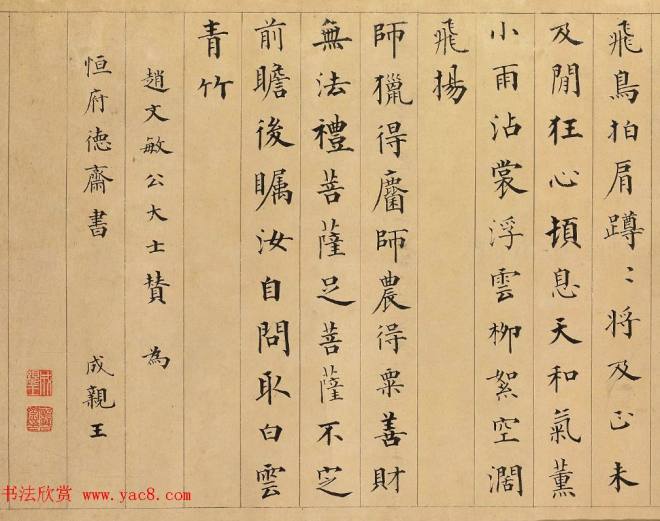 飛鳥拍肩蹲〻将及正未
及閒狂心頓息天和氣薰
小雨沾裳浮雲柳絮空濶
飛揚
師獵得麕師農得粟善財
無法禮菩薩足菩薩不㝎
前瞻後矚汝自問取白雲
青竹
趙文敏公大士賛 為
恒府徳齋書 成親王
书法欣赏 www.yac8.com